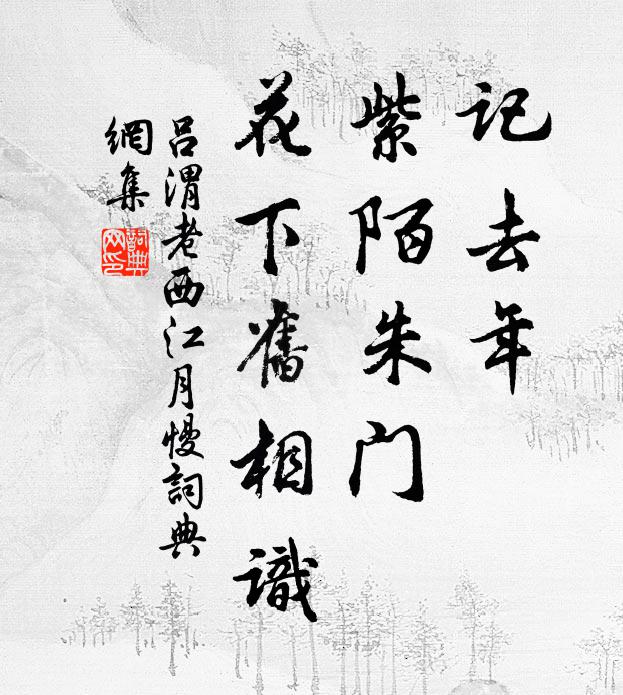 記去年
紫陌朱门
花下舊相識
吕渭老西江月慢詞典
網集
詞典
网印